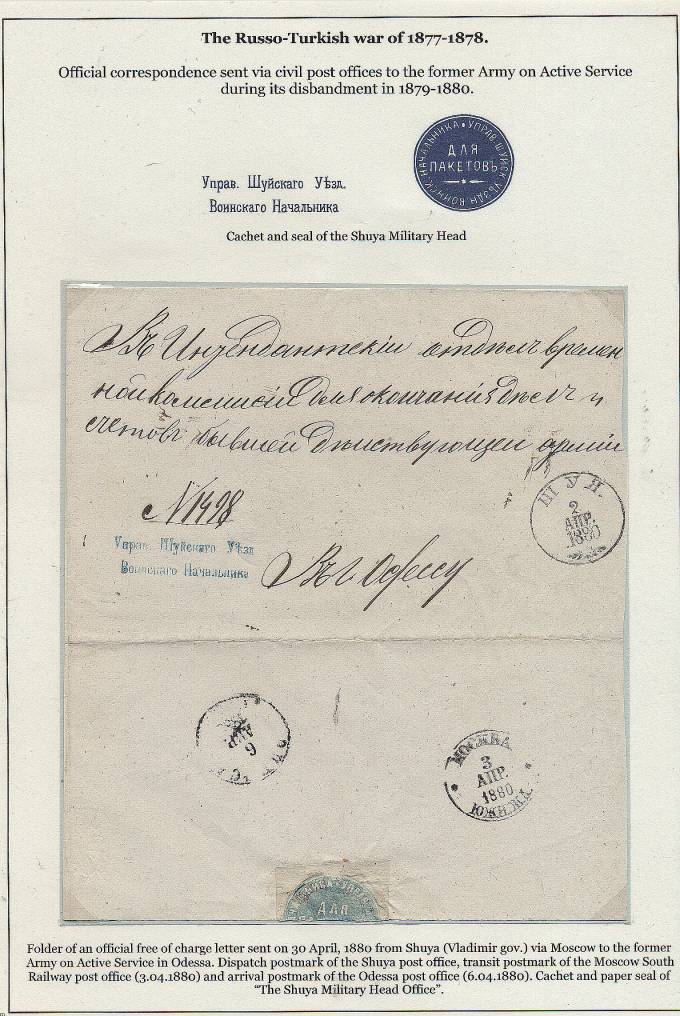 The Russo-Turkish war of 1877-1878.
Official correspondence sent via civil post offices to the former Army on Active Service
during its disbandment in 1879-1880.
УПРАВ ШУЙСК УѢЗДН ВОИНСК НАЧАЛЬНИКА
ДЛЯ
ПАКЕТОВЪ
Управ. Шуйскаго Уѣзд.
Воинскаго Начальника
Cachet and seal of the Shuya Military Head
Въ Интендантскій отдѣлъ времен
ной комисіи для окончанія дѣлъ и
счетовъ бывшей дѣйствующей арміи
N 1498
ШУЯ.
2
АПР.
1880
Управ. Шуйскаго Уѣзд
Воинскаго Начальника
Въ г. Одессу
6
АПР
МОСКВА
3
АПР.
1880
НИКА УПР
ДЛЯ
Folder of an official free of charge letter sent on 30 April, 1880 from Shuya (Vladimir gov.) via Moscow to the former
Army on Active Service in Odessa. Dispatch postmark of the Shuya post office, transit postmark of the Moscow South
Railway post office (3.04.1880) and arrival postmark of the Odessa post office (6.04.1880). Cachet and paper seal of
“The Shuya Military Head Office”.